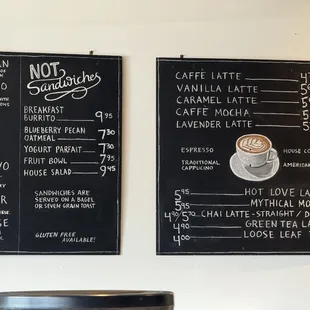 NOT
Sandwiches
BREAKFAST
BURRITO 9.95
BLUEBERRY PECAN
OATMEAL 7.30
YOGURT PARFAIT 7.30
FRUIT BOWL 7.45
HOUSE SALAD 9.45
SANDWICHES ARE
SERVED ON A BAGEL
OR SEVEN GRAIN TOAST
GLUTEN FREE
AVAILABLE!
CAFFÈ LATTE
VANILLA LATTE
CARAMEL LATTE
CAFFÈ MOCHA
LAVENDER LATTE
ESPRESSO HOUSE
TRADITIONAL
CAPPUCINO
5.95 HOT LOVE
5.95 MYTHICAL
4.90/5.70 CHAI LATTE-STRAIGHT/
4.90 GREEN TEA
4.00 LOOSE LEAF